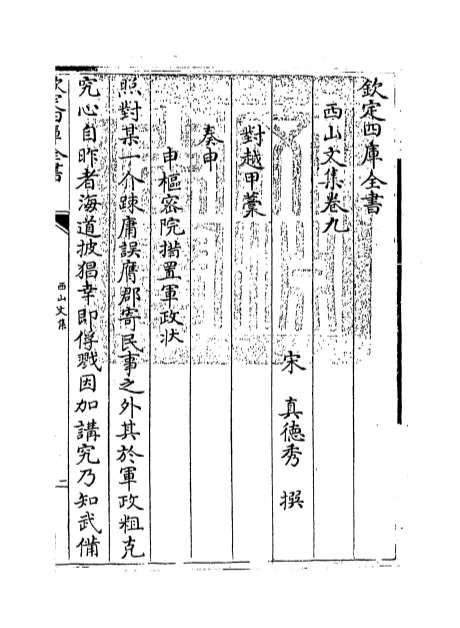 欽定四庫全書
西山文集卷九
宋 真德秀 撰
對越甲藁
奏申
申樞密院措置軍政狀
照對某一介踈庸誤膺郡寄民事之外其於軍政粗克
究心自昨者海道披猖幸即俘戮因加講究乃知武備
欽定四庫全書
西山文集
二